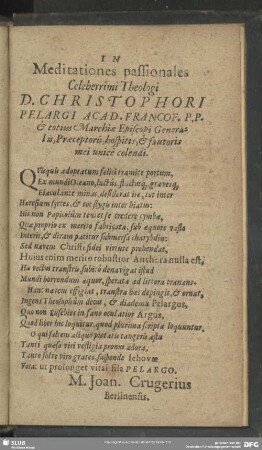 IN
Meditationes passionales
Celeberrimi Theologi
D. CHRISTOPHORI
PELARGI ACAD. FRANCOF. P.P.
& totius Marchiæ Episcopi Genera-
lis, Præceptoris, hospitis, & fautoris
mei unicè colendi.
QVisquis adoptatum felici tramite portum,
Ex mundi Oceano, luctus, fluctusq́; graveis,
Eluctante minas, desiderat ire, tot inter
Heresium syrtes, & tot stygis inter hiatus:
His non Papicolûm tou et se credere cymbæ,
Quæ proprio ex merito fabricata, sub æquore vasto
Interit, & diram patitur submersa charybdin:
Sed navem Christi fidei virtute prehendat,
Huius enim merito robustior Anchora nulla est;
Hâ rectâ transtris, subitò denavigat istud
Mundi horrendum æquor, sperata ad littora tranans.
Hanc navem effigiat, transtra hæc depingit, & ornat,
Ingens Theosophûm decus, & diadema Pelargus,
Quo non Eusebies in fano oculatior Argus,
Quod liber hic loquitur, quod plurima scripta loquuntur.
O qui saltem aliquis pietatis tangeris æstu
Tanti quæso viri vestigia pronus adora,
Tanto sospite viro grates, suspende Iehovæ
Vota: ut prolonget vitai fila PELARGO.
M. Joan. Crugerius
Berlinensis.
SLUB